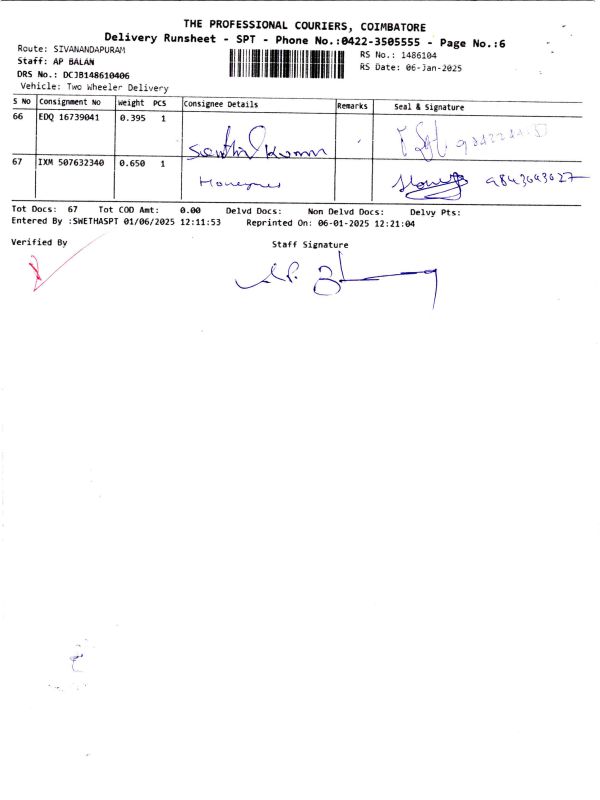 THE PROFESSIONAL COURIERS, COIMBATORE
Delivery Runsheet - SPT - Phone No.:0422-3505555 - Page No.:6
Route: SIVANANDAPURAM
RS No.: 1486104
Staff: AP BALAN
RS Date: 06-Jan-2025
DRS No.: DCJB148610406
Vehicle: Two Wheeler Delivery
S No Consignment No Weight PCS Consignee Details Remarks Seal & Signature
66 EDQ 16739041 0.395 1
Senthil Kumar
67 IXM 507632340 0.650 1
9843693627
Tot Docs: 67 Tot COD Amt: 0.00 Delvd Docs: Non Delvd Docs: Delvy Pts:
Entered By :SWETHASPT 01/06/2025 12:11:53 Reprinted On: 06-01-2025 12:21:04
Verified By Staff Signature